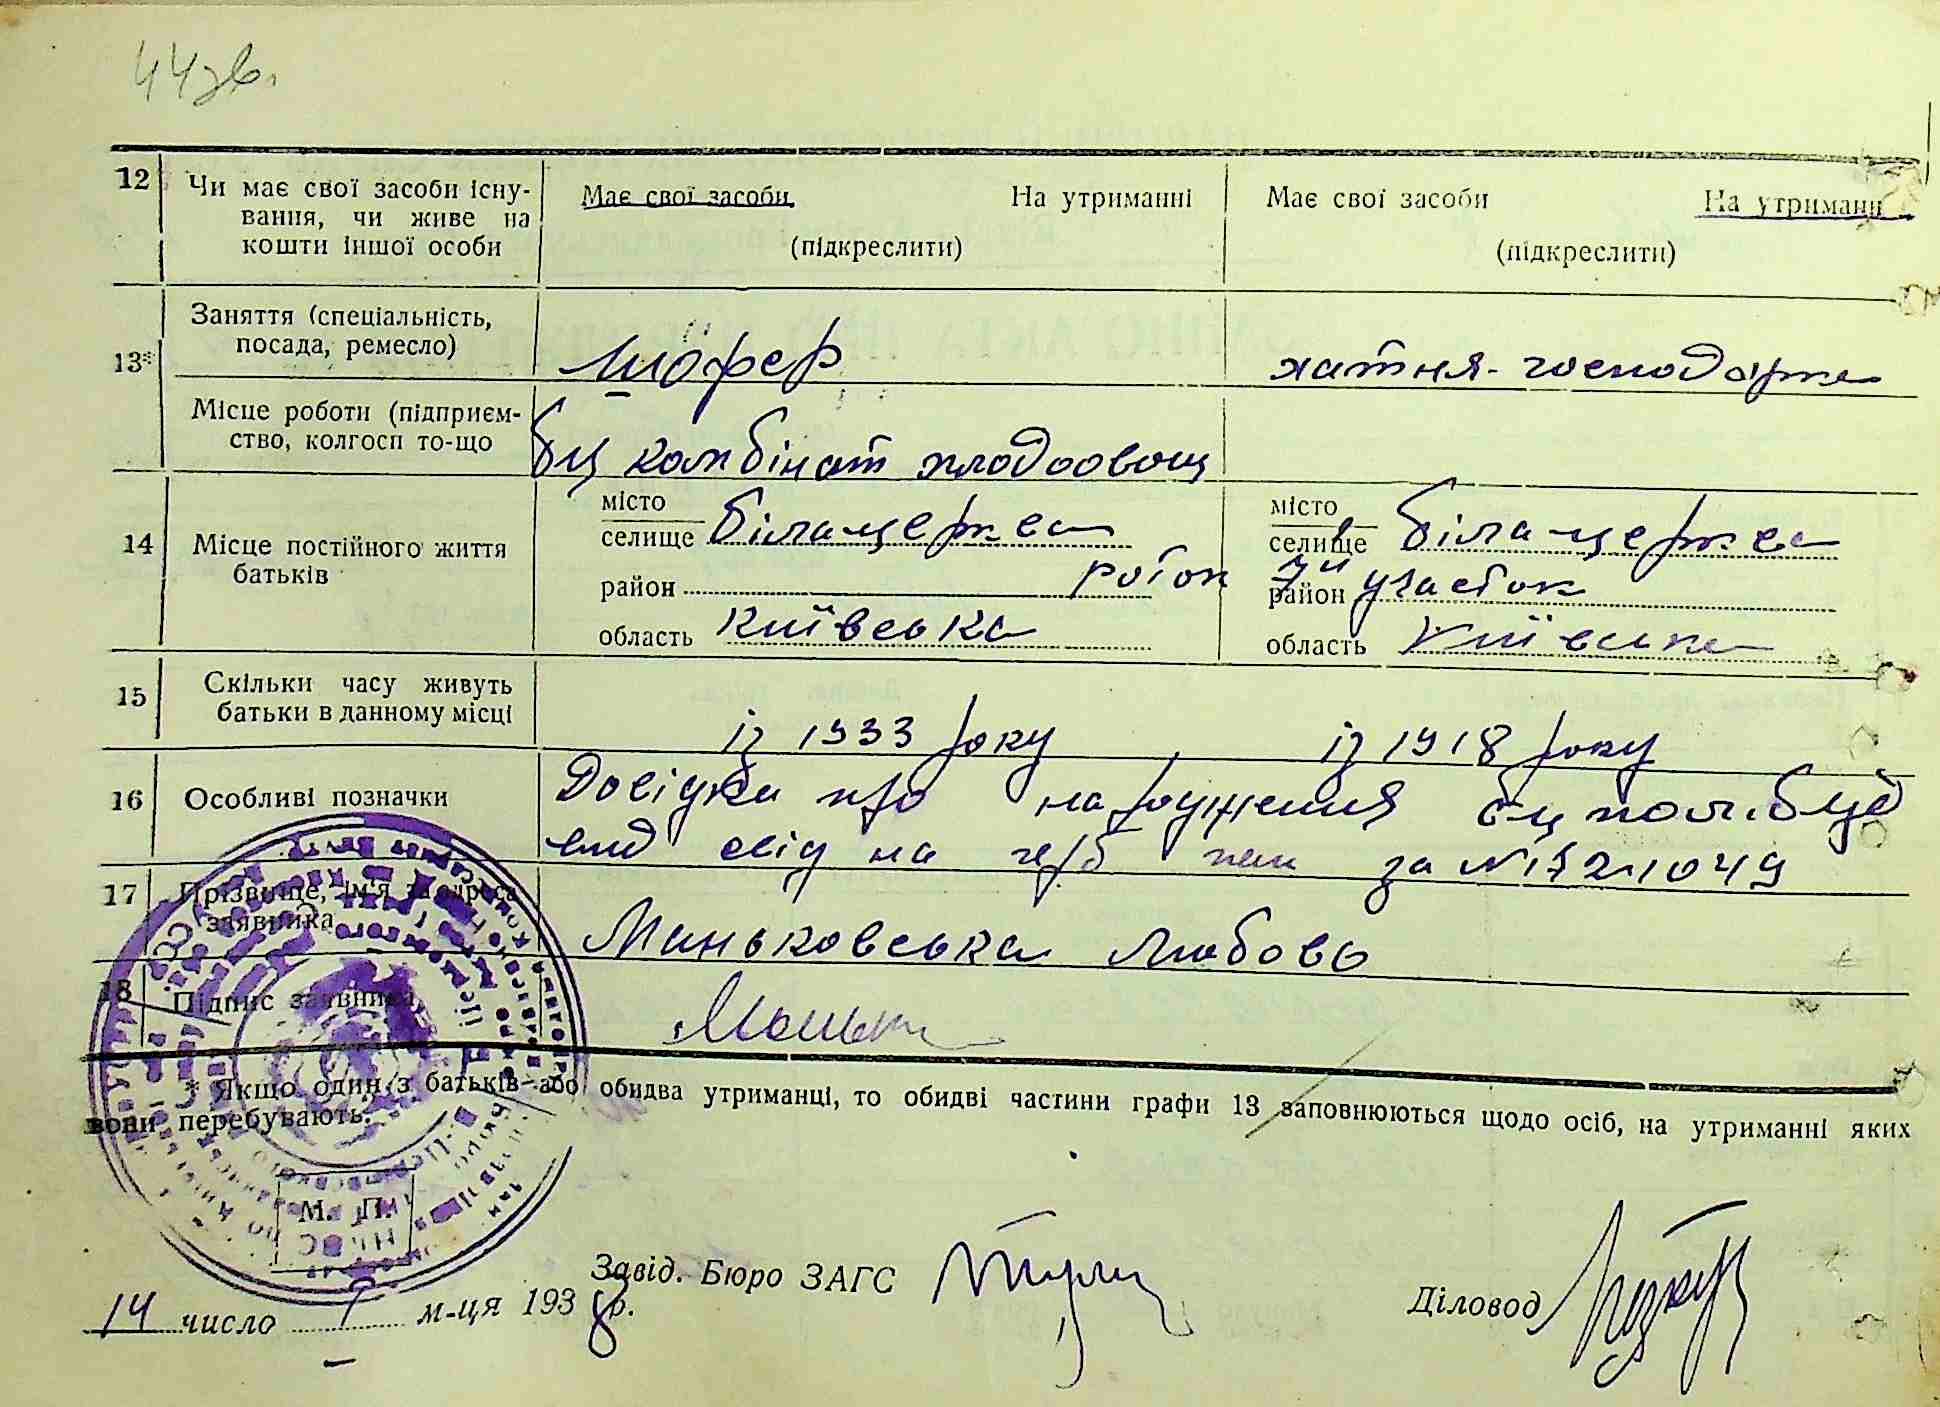 44 зв.
12 Чи має свої засоби існу- Має свої засоби На утриманні Має свої засоби На утриманн
вання, чи живе на
кошти іншої особи (підкреслити) (підкреслити)
Заняття (спеціальність,
13* посада, ремесло) Шофер хатня-господарка
Місце роботи (підприєм-
ство, колгосп то-що бц комбінат плодоовощ
місто місто
селище Біла церква селище Біла церква
14 Місце постійного життя
батьків
район роток район 3й участок
область Київська область Київська
15 Скільки часу живуть
батьки в данному місці із 1933 року із 1918 року
16 Особливі позначки Довідка про народження бц пол.буд
вид свід на герб пап за №1721049
17 Прізвище, ім'я та адреса
заявника Маньковська Любовь
18 Підпис заявника Маньк
* Якщо один з батьків або обидва утриманці, то обидві частини графи 13 заповнюються щодо осіб, на утриманні яких
вони перебувають.
М. П.
Завід. Бюро ЗАГС
Діловод
14 число 1 м-ця 1938 р.